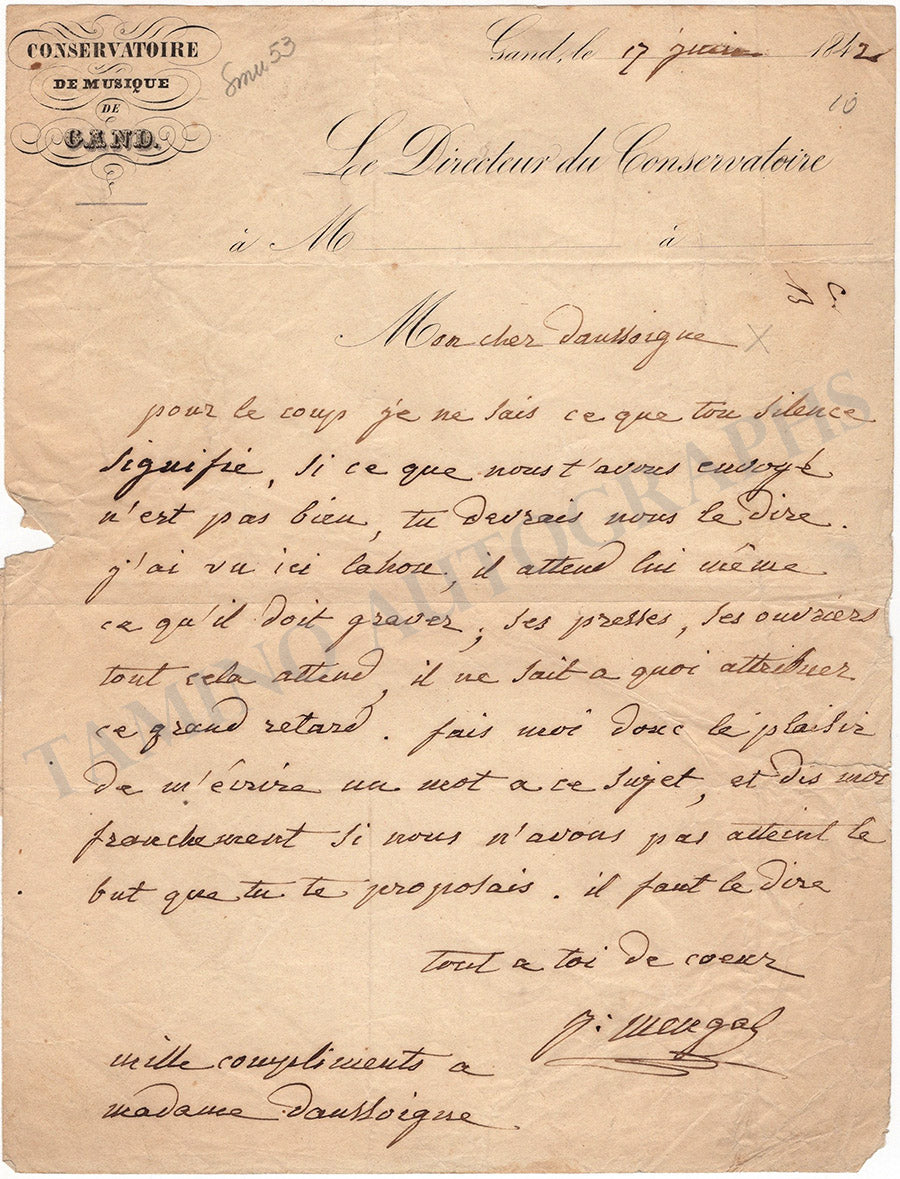 CONSERVATOIRE
DE MUSIQUE
DE
GAND.
Smu 53
Gand, le 17 juin 1842
10
Le Directeur du Conservatoire
à M à
B C.
Mon cher daussoigne X
pour le coup je ne sais ce que ton silence
signifie, si ce que nous t'avons envoyé
n'est pas bien, tu devrais nous le dire.
j'ai vu ici lahou, il attend lui même
ce qu'il doit graver, ses presses, ses ouvriers
tout cela attend, il ne sait a quoi attribuer
ce grand retard. fais moi donc le plaisir
de m'écrire un mot a ce sujet, et dis moi
franchement si nous n'avons pas atteint le
but que tu te proposais. il faut le dire
tout a toi de coeur
j. mengal
mille compliments a
madame daussoigne
TAMINO AUTOGRAPHS